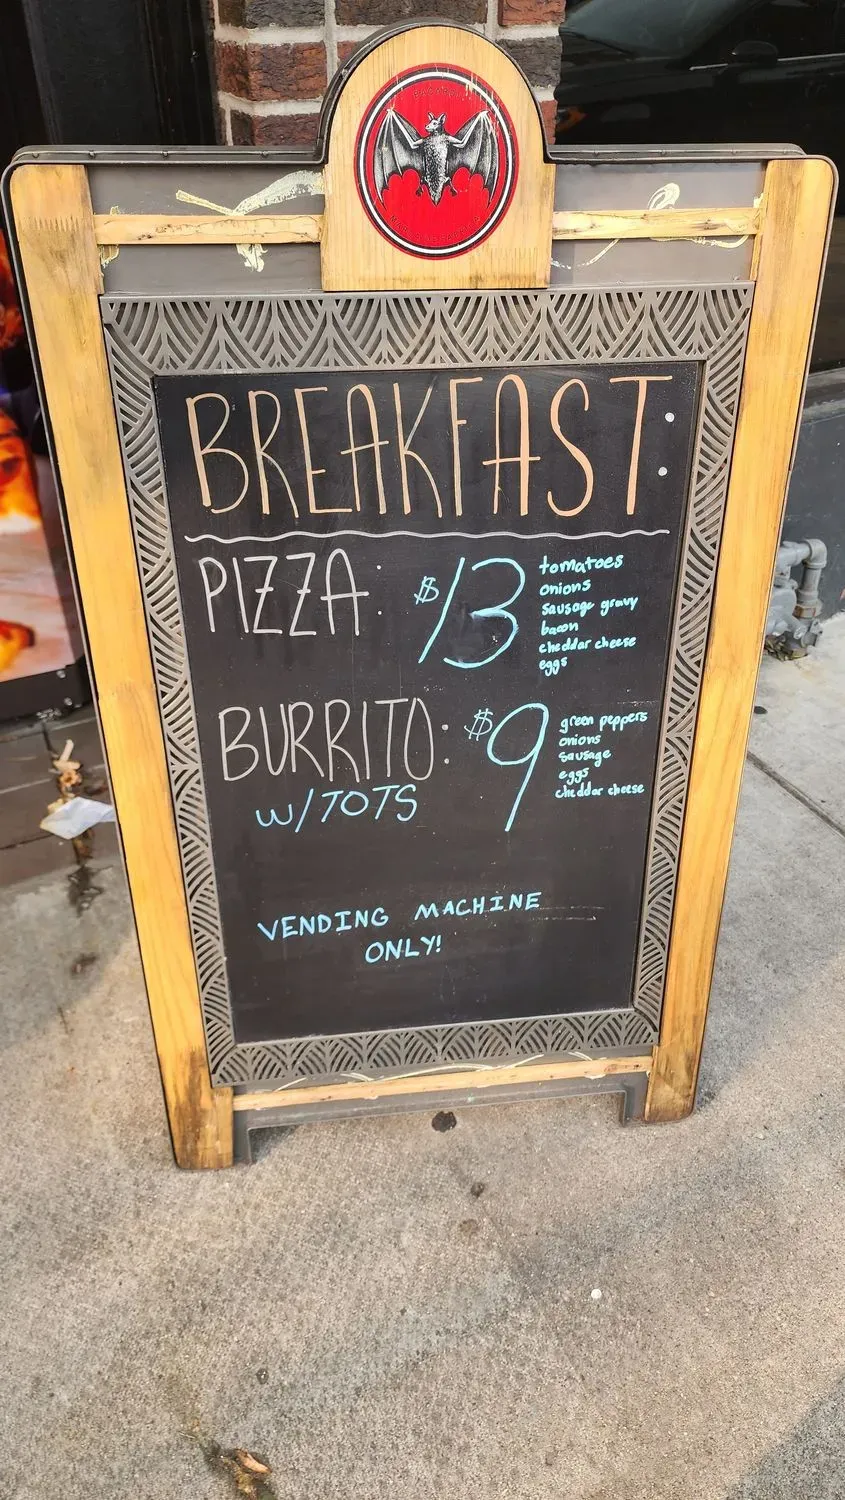 BACARDI
BREAKFAST:
PIZZA: $13
tomatoes
onions
sausage gravy
bacon
cheddar cheese
eggs
BURRITO: $9
W/TOTS
green peppers
onions
sausage
eggs
cheddar cheese
VENDING MACHINE
ONLY!